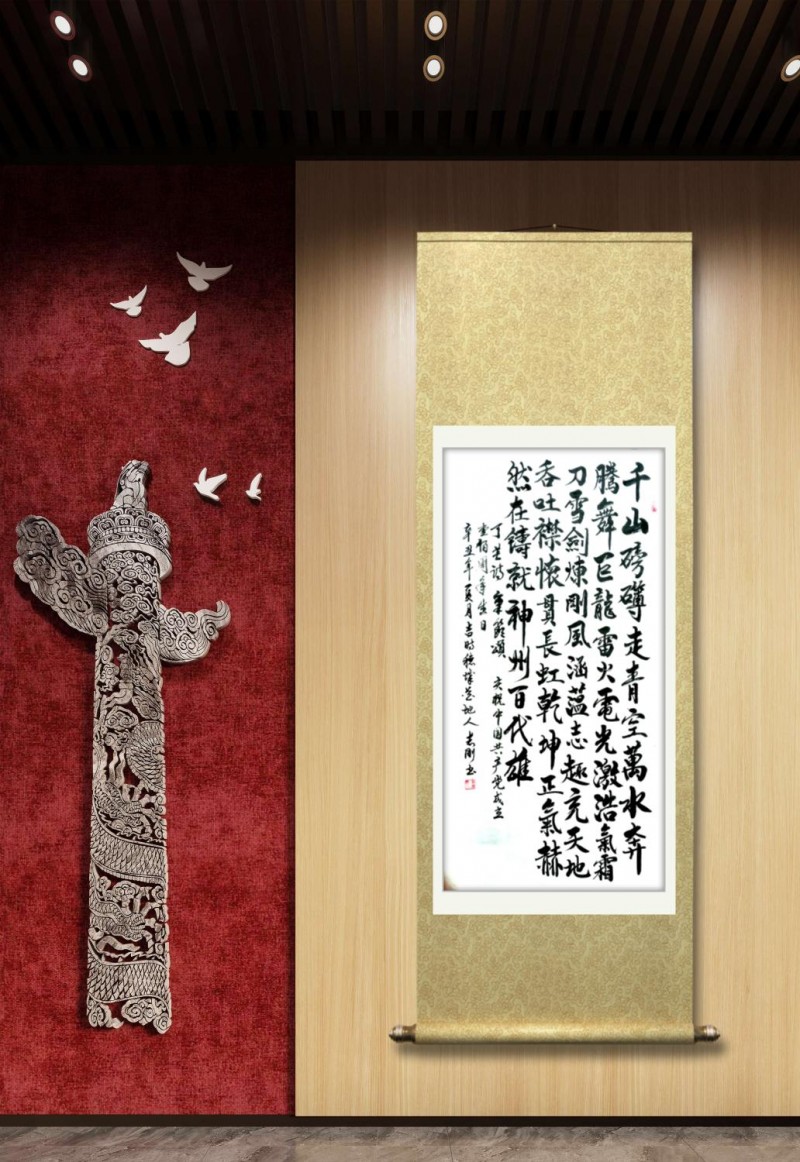 千山磅礴走青空萬水奔
騰舞巨龍雷火電光激浩氣霜
刀雪劍煉剛風涵蕴志趣充天地
吞吐襟懷貫長虹乾坤正氣赫
然在鑄就神州百代雄
丁芒詩 頌 庆祝中国共产党成立
壹佰周年生日
辛丑年夏月吉時 地人 书